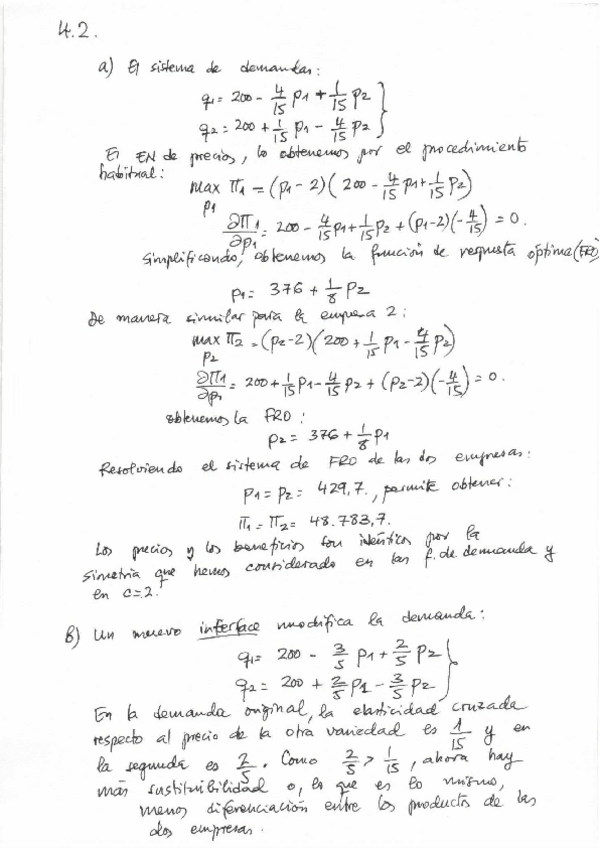 4.2.
a) El sistema de demandas:
q1 = 200 - 4/15 p1 + 1/15 p2 }
q2 = 200 + 1/15 p1 - 4/15 p2 }
El EN de precios, lo obtenemos por el procedimiento
habitual:
max π1 = (p1 - 2) (200 - 4/15 p1 + 1/15 p2)
p1
∂π1/∂p1 = 200 - 4/15 p1 + 1/15 p2 + (p1-2)(-4/15) = 0.
Simplificando, obtenemos la función de respuesta óptima (FRO)
p1 = 376 + 1/8 p2
De manera similar para la empresa 2:
max π2 = (p2-2) (200 + 1/15 p1 - 4/15 p2)
p2
∂π1/∂p2 = 200 + 1/15 p1 - 4/15 p2 + (p2-2)(-4/15) = 0.
obtenemos la FRO:
p2 = 376 + 1/8 p1
Resolviendo el sistema de FRO de las dos empresas:
p1 = p2 = 429,7., permite obtener:
π1 = π2 = 48.783,7.
Los precios y los beneficios son idénticos por la
simetría que hemos considerado en las f. de demanda y
en c=2.
b) Un nuevo interface modifica la demanda:
q1 = 200 - 3/5 p1 + 2/5 p2 }
q2 = 200 + 2/5 p1 - 3/5 p2 }
En la demanda original, la elasticidad cruzada
respecto al precio de la otra variedad es 1/15 y en
la segunda es 2/5. Como 2/5 > 1/15, ahora hay
más sustituibilidad o, lo que es lo mismo,
menos diferenciación entre los productos de las
dos empresas.